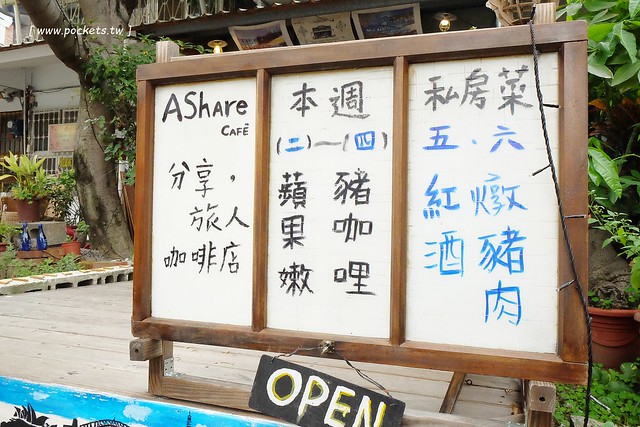 [ www.pockets.tw ]
AShare
CAFÉ
分享，
旅人
咖啡店
本週
(二)—(四)
蘋果嫩
豬咖哩
私房菜
五．六
紅酒
燉豬肉
OPEN